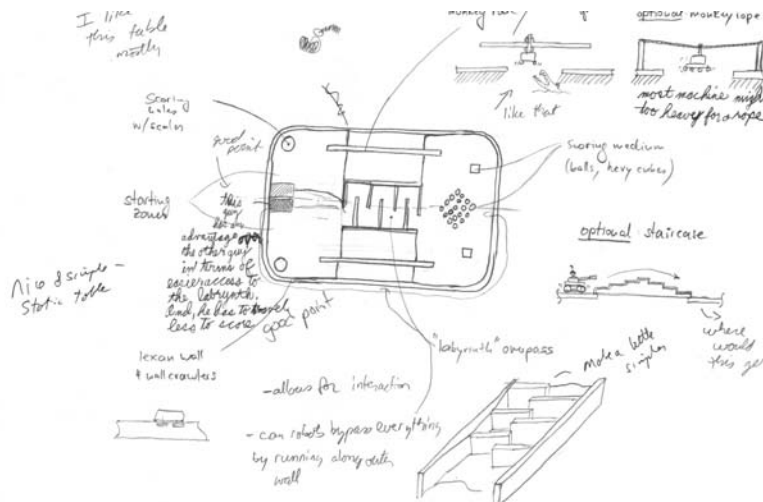 I like
this table
mostly
optional monkey rope
like that
most machine might
too heavy for a rope
Scoring
holes
w/scales
good
point
starting
zones
this
guy
has an
advantage over
the other guy
in terms of
easier access to
the labyrinth.
And, he has to travel
less to score
good point
scoring medium
(balls, hevy cubes)
optional staircase
where
would
this ge
Nice & simple -
static table
lexan wall
& wall crawlers
"labyrinth" overpass
make a little
simpler
- allows for interaction
- can robots bypass everything
by running along outer
wall